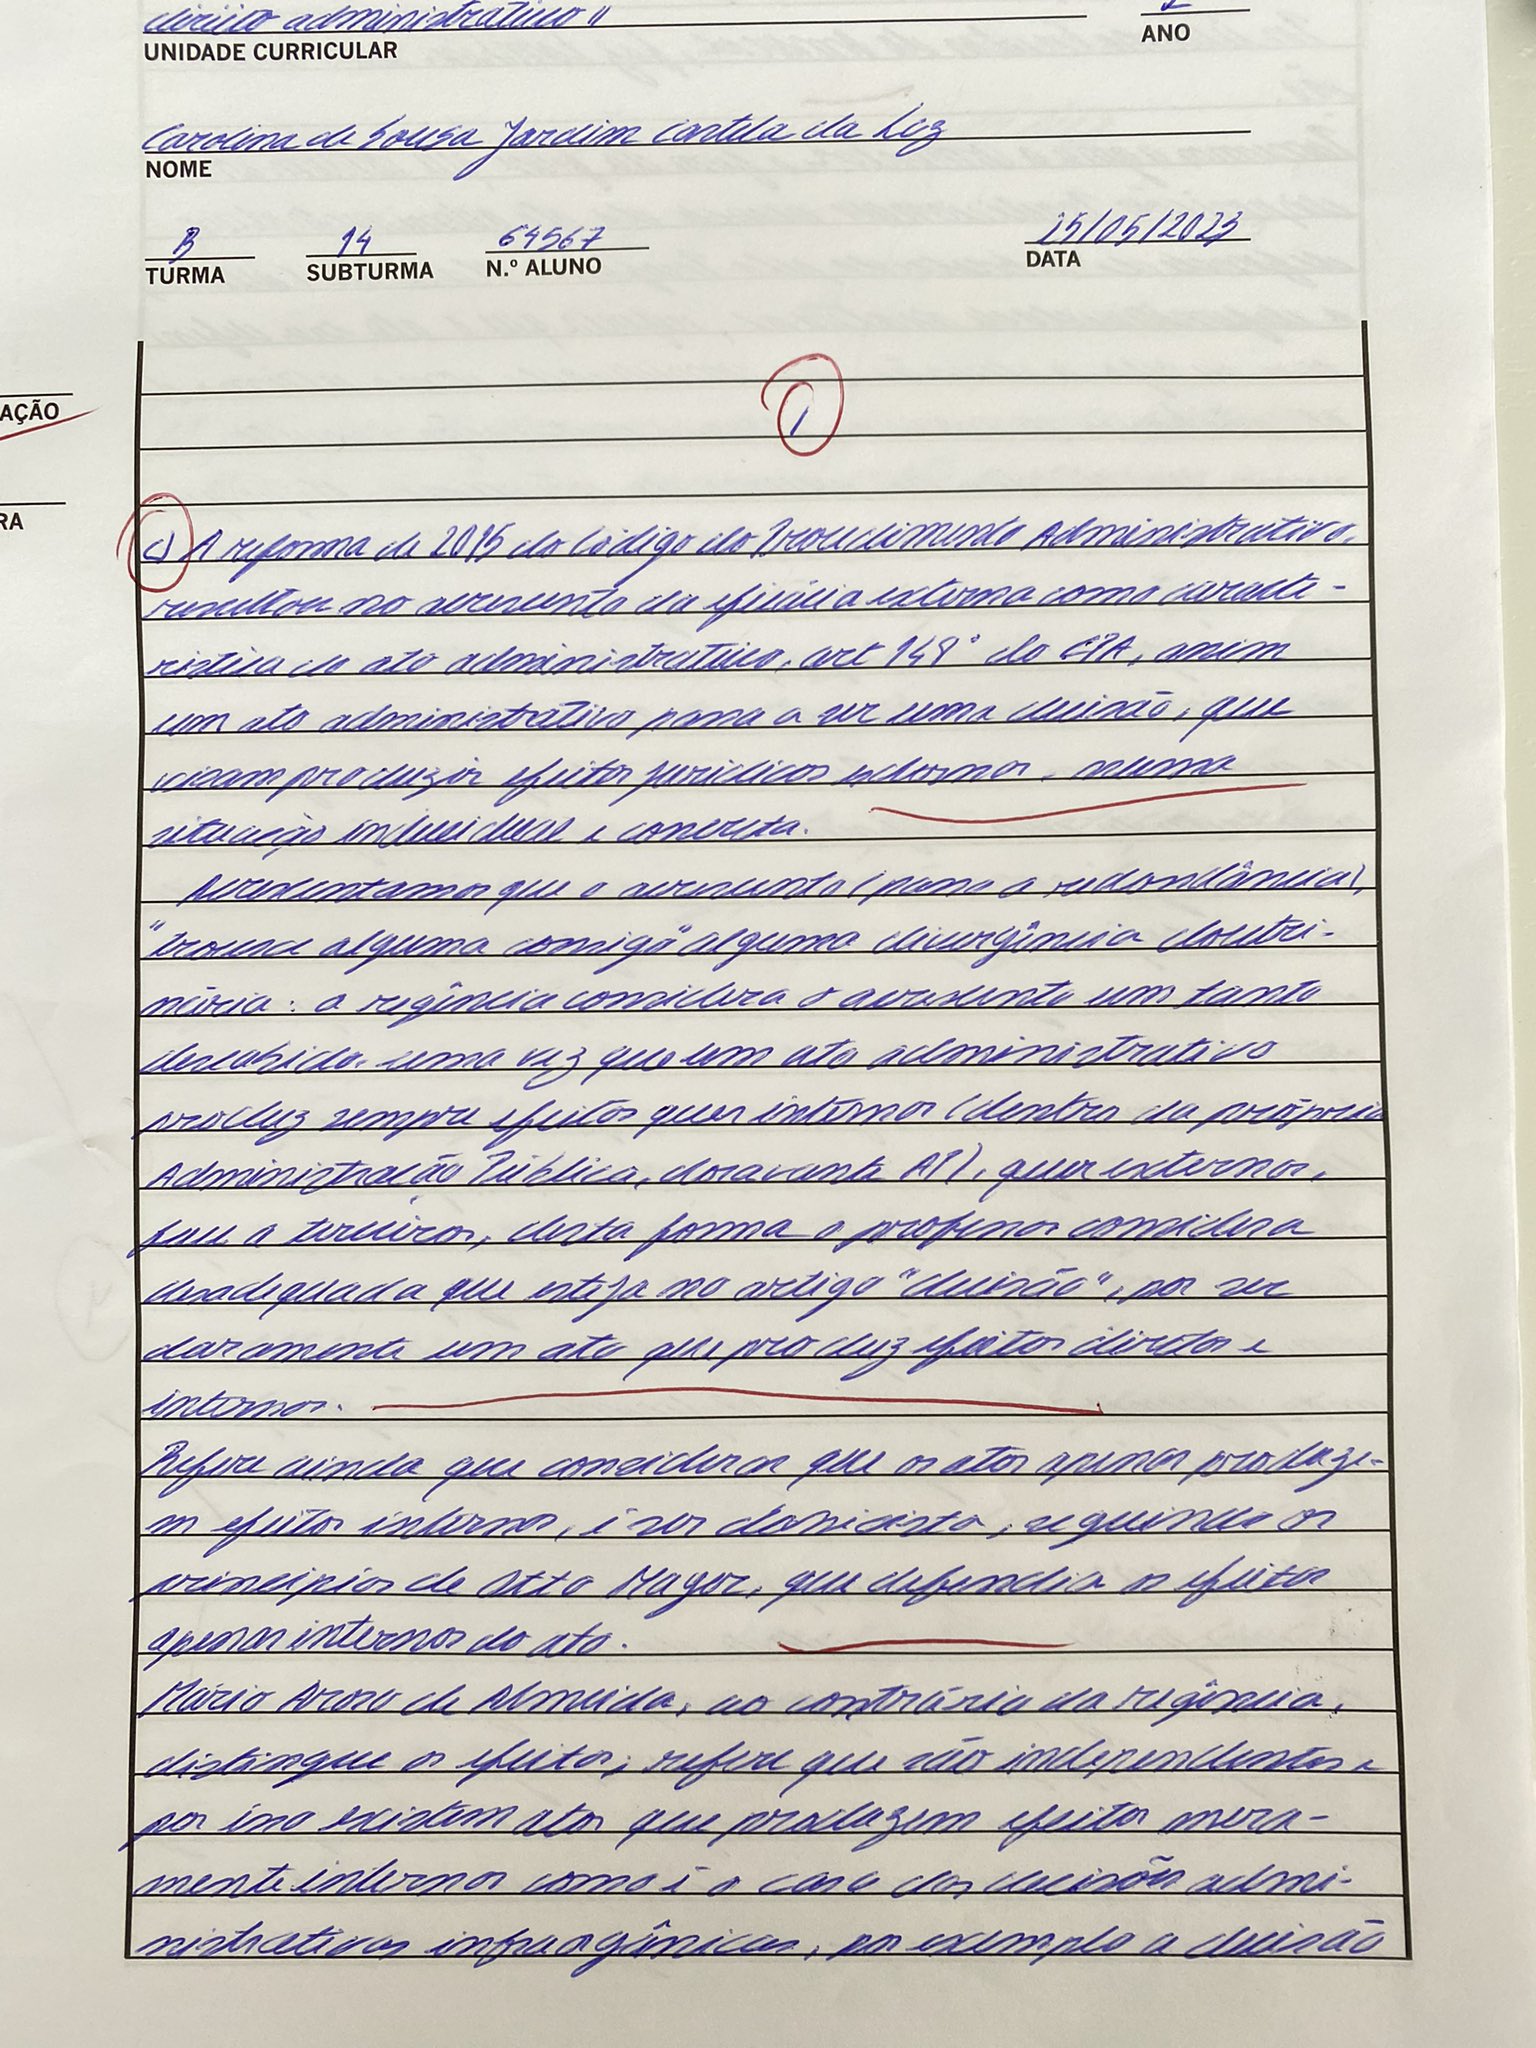 direito administrativo II
UNIDADE CURRICULAR
ANO
Carolina de Sousa Jardim Castela da Luz
NOME
B 14 64567 25/05/2023
TURMA SUBTURMA N.º ALUNO DATA
AÇÃO
RA
I
c) A reforma de 2015 do Código do Procedimento Administrativo,
resultou no acrescento da eficácia externa como caracte-
rística do ato administrativo, art 148º do CPA, assim
um ato administrativo passa a ser uma decisão, que
visam produzir efeitos jurídicos externos, numa
situação individual e concreta.
Acrescentamos que o acrescento (passo a redondância),
"trouxe alguma comigo" alguma divergência doutri-
nária: a regência considera o acrescento um tanto
descabido, uma vez que um ato administrativo
produz sempre efeitos quer internos (dentro da própria
Administração Pública, doravante AP), quer externos,
face a terceiros, desta forma o professor considera
desadequada que esteja no artigo "decisão", por ser
claramente um ato que produz efeitos diretos e
internos.
Refere ainda que considerar que os atos apenas produze-
m efeitos internos, é ser, seguindo os
princípios de Otto Mayer, que defendia os efeitos
apenas internos do ato.
Mário Aroso de Almeida, ao contrário da regência,
distingue os efeitos, refere que são independentes e
por isso existem atos que produzem efeitos mera-
mente internos como é o caso das decisões admi-
nistrativas infraorgânicas, por exemplo a decisão